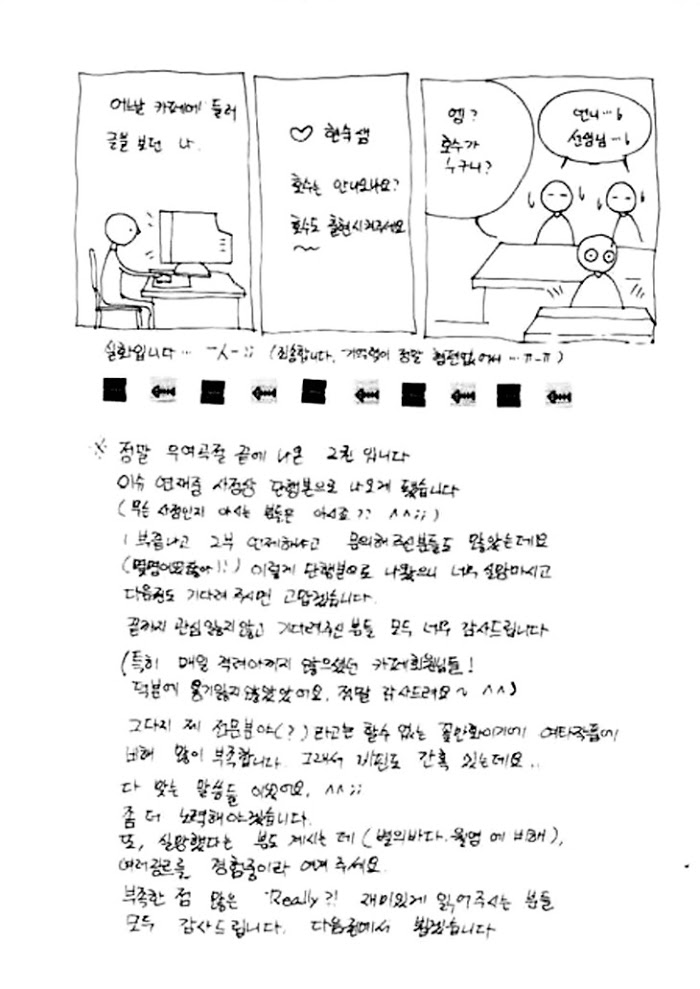 어느날 카페에 들러
글을 보던 나.
♡ 현수샘
호수는 안나오나요?
호수도 출현시켜주세요
엥?
호수가
누구니?
언니…
선생님…
실화입니다… ㅡㅅㅡ;; (죄송합니다. 기억력이 정말 형편없어서…ㅠ-ㅠ)
※ 정말 우여곡절 끝에 나온 2권 입니다
이슈 연재중 사정상 단행본으로 나오게 됐습니다
(무슨 사정인지 아시는 분들은 아시죠?? ^^;;)
1부끝나고 2부 언제하냐고 문의해주신분들도 많았는데요
(몇명이었잖아!!) 이렇게 단행본으로 나왔으니 너무 실망마시고
다음권도 기다려 주시면 고맙겠습니다.
끝까지 관심잃지않고 기다려주신 분들 모두 너무 감사드립니다
(특히 매일 격려아끼지 않으셨던 카페회원님들!
덕분에 용기잃지않았었어요. 정말 감사드려요~ ^^)
그다지 제 전문분야(?)라고는 할수 없는 꽃만화이기에 여타작품에
비해 많이 부족합니다. 그래서 비판도 간혹 있는데요..
다 맞는 말씀들 이셨어요. ^^;;
좀 더 노력해야겠습니다.
또, 실망했다는 분도 계시는 데 (별의바다. 월영 에 비해),
여러장르를 경험중이라 여겨 주세요.
부족한 점 많은 "Really?! 재미있게 읽어주시는 분들
모두 감사드립니다. 다음권에서 뵙겠습니다